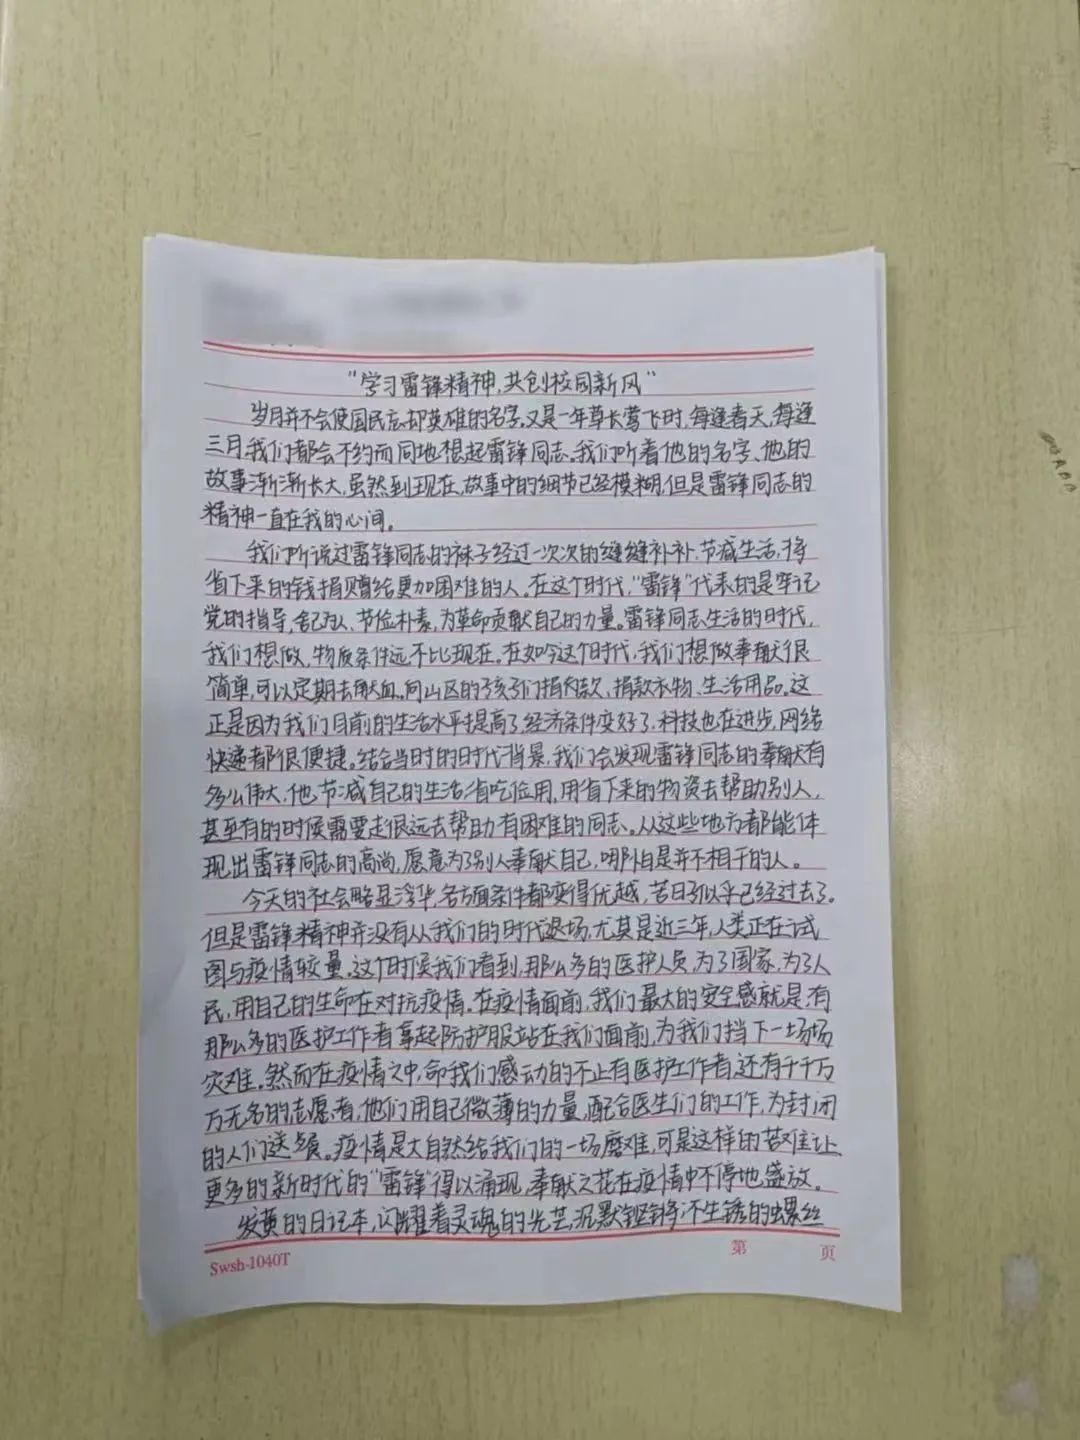 “学习雷锋精神,共创校园新风”
岁月并不会使国民忘却英雄的名字。又是一年草长莺飞时,每逢春天,每逢
三月,我们都会不约而同地想起雷锋同志。我们听着他的名字、他的
故事渐渐长大,虽然到现在,故事中的细节已经模糊,但是雷锋同志的
精神一直在我的心间。
我们听说过雷锋同志的袜子经过一次次的缝缝补补,节减生活,将
省下来的钱捐赠给更加困难的人。在这个时代,“雷锋”代表的是牢记
党的指导,舍己为人、节俭朴素,为革命贡献自己的力量。雷锋同志生活的时代,
我们想做,物质条件远不比现在。在如今这个时代,我们想做奉献很
简单,可以定期去献血。向山区的孩子们捐款、捐款衣物、生活用品。这
正是因为我们目前的生活水平提高了,经济条件变好了,科技也在进步,网络
快递都很便捷。结合当时的时代背景,我们会发现雷锋同志的奉献有
多么伟大,他节减自己的生活,省吃俭用,用省下来的物资去帮助别人,
甚至有的时候需要走很远去帮助有困难的同志。从这些地方都能体
现出雷锋同志的高尚,愿意为了别人奉献自己,哪怕是并不相干的人。
今天的社会略显浮华,各方面条件都变得优越,苦日子似乎已经过去了。
但是雷锋精神并没有从我们的时代退场,尤其是近三年,人类正在试
图与疫情较量。这个时候我们看到,那么多的医护人员,为了国家,为了人
民,用自己的生命在对抗疫情。在疫情面前,我们最大的安全感就是,有
那么多的医护工作者拿起防护服站在我们面前,为我们挡下一场场
灾难。然而在疫情之中,令我们感动的不止有医护工作者,还有千千万
万无名的志愿者,他们用自己微薄的力量,配合医生们的工作,为封闭
的人们送餐。疫情是大自然给我们的一场磨难,可是这样的苦难让
更多的新时代的“雷锋”得以涌现,奉献之花在疫情中不停地盛放。
发黄的日记本,闪耀着灵魂的光芒,沉默铿锵,不生锈的螺丝
Swsh-1040T
第 页